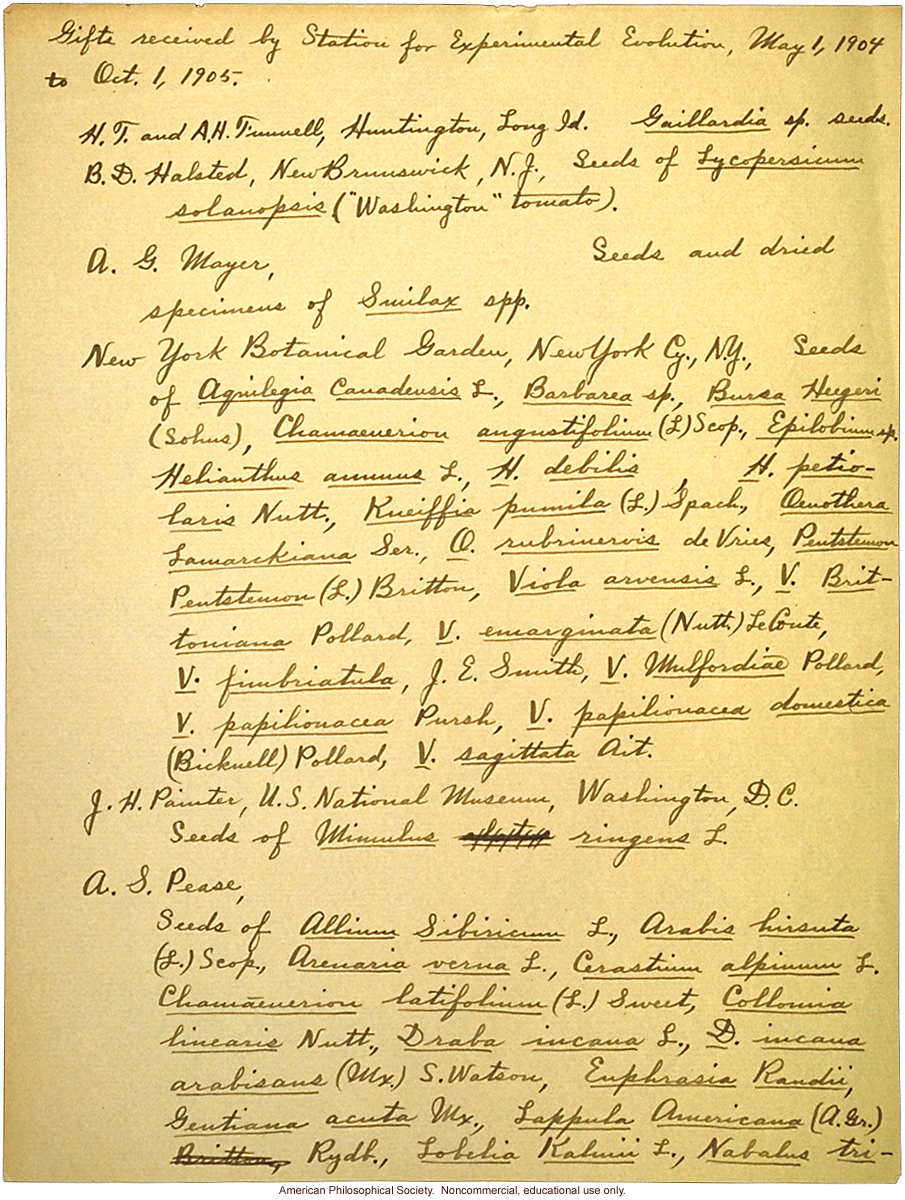 Gifts received by Station for Experimental Evolution, May 1, 1904
to Oct. 1, 1905.
H. T. and A.H. Funnell, Huntington, Long Id. Gaillardia sp. seeds.
B. D. Halsted, New Brunswick, N.J., Seeds of Lycopersicum
solanopsis ("Washington" tomato).
A. G. Mayer, Seeds and dried
specimens of Smilax spp.
New York Botanical Garden, New York Cy., N.Y., Seeds
of Aquilegia Canadensis L., Barbarea sp., Bursa Heegeri
(Solms), Chamaenerion angustifolium (L.) Scop., Epilobium sp.
Helianthus annuus L., H. debilis , H. petio-
laris Nutt., Kneiffia pumila (L.) Spach., Oenothera
Lamarckiana Ser., O. rubrinervis de Vries, Pentstemon
Pentstemon (L.) Britton, Viola arvensis L., V. Brit-
toniana Pollard, V. emarginata (Nutt.) LeConte,
V. fimbriatula, J. E. Smith, V. Mulfordiae Pollard,
V. papilionacea Pursh, V. papilionacea domestica
(Bicknell) Pollard, V. sagittata Ait.
J. H. Painter, U.S. National Museum, Washington, D.C.
Seeds of Mimulus ringens L.
A. S. Pease,
Seeds of Allium Sibiricum L., Arabis hirsuta
(L.) Scop., Arenaria verna L., Cerastium alpinum L.
Chamaenerion latifolium (L.) Sweet, Collomia
linearis Nutt., Draba incana L., D. incana
arabisans (Mx.) S. Watson, Euphrasia Randii,
Gentiana acuta Mx., Lappula Americana (A. Gr.)
Britton, Rydb., Lobelia Kalmii L., Nabalus tri-
American Philosophical Society. Noncommercial, educational use only.